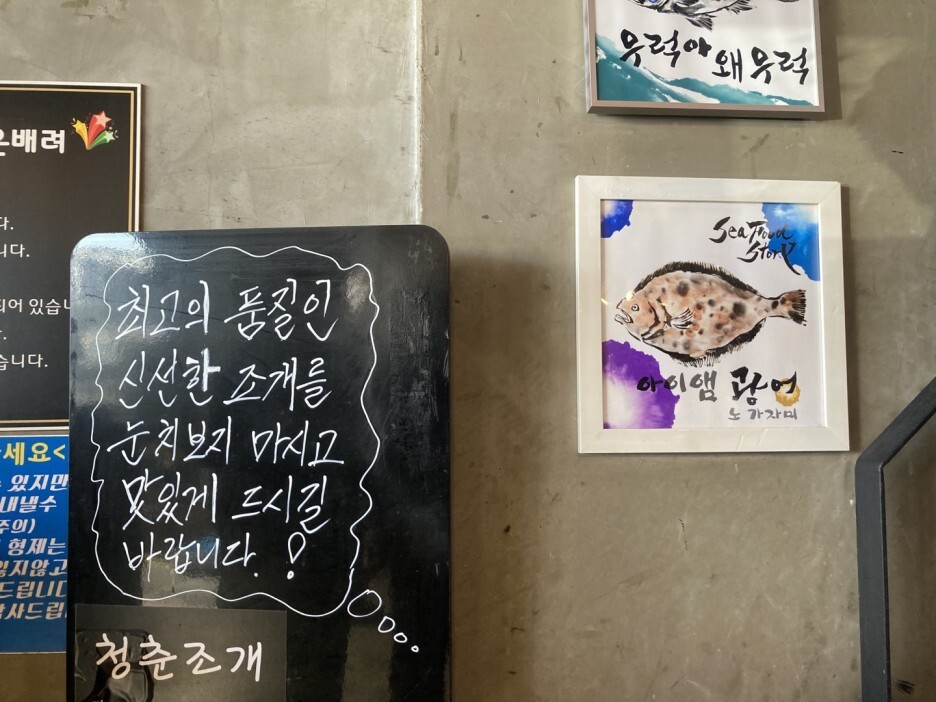 우럭아 왜 우럭
은배려
다.
니다.
되어 있습니
다.
습니다.
Sea Food
Story
아이앰 광어
노 가자미
최고의 품질인
신선한 조개를
눈치보지 마시고
맛있게 드시길
바랍니다. !
청춘조개
세요<
있지만
내낼수
주의)
형제는
잊지않고
드립니다
감사드립